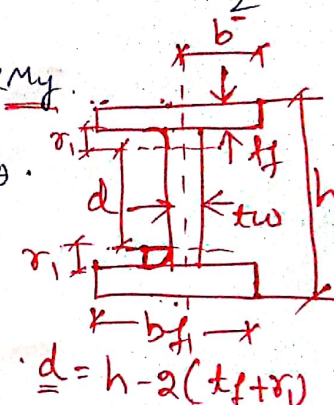 2
b
My.
r₁
tf
d
tw
h
r₁
bf₁
d = h - 2(tf + r₁)